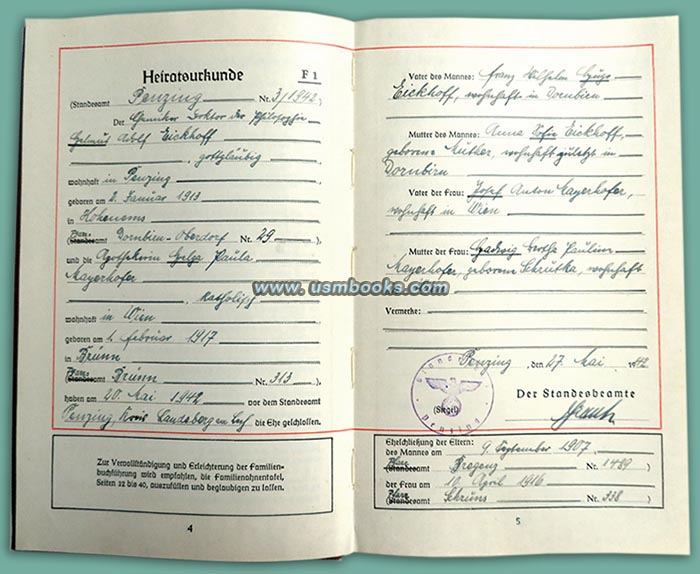 Heiratsurkunde F 1
(Standesamt Penzing Nr. 3/1942)
Der Chemiker Doktor der Philosophie
Helmut Adolf Eickhoff
, gottgläubig
wohnhaft in Penzing
geboren am 8. Januar 1913
in Hohenems
(Pfarramt Dornbirn-Oberdorf Nr. 29)
und die Apothekerin Helga Paula
Mayerhofer
, katholisch
wohnhaft in Wien
geboren am 1. Februar 1917
in Brünn
(Standesamt Brünn Nr. 313)
haben am 20. Mai 1942 vor dem Standesamt
Penzing, Kreis Landsberg am Lech die Ehe geschlossen.
Zur Vervollständigung und Erleichterung der Familien-
buchführung wird empfohlen, die Familienahnentafel,
Seiten 22 bis 40, auszufüllen und beglaubigen zu lassen.
4
Vater des Mannes: Franz Wilhelm Hugo
Eickhoff, wohnhaft in Dornbirn
Mutter des Mannes: Anna Sofie Eickhoff,
geborene Mutter, wohnhaft zuletzt in
Dornbirn
Vater der Frau: Josef Anton Mayerhofer,
wohnhaft in Wien
Mutter der Frau: Hedwig Pauline
Mayerhofer, geborene Schrutka, wohnhaft
Vermerke:
Penzing, den 27. Mai 1942
Der Standesbeamte
(Siegel)
Penzing
Eheschließung der Eltern:
des Mannes am 9. September 1907
(Standesamt Bregenz Nr. 1489)
der Frau am 10. April 1916
(Standesamt Schruns Nr. 338)
5
www.usmbooks.com